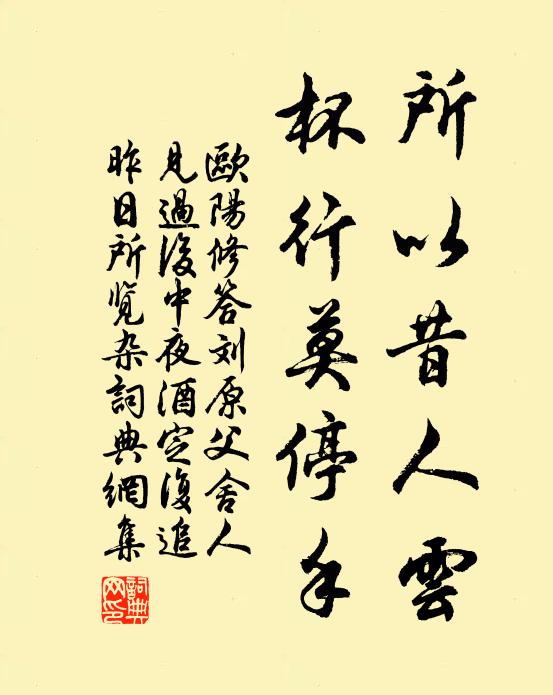 所以昔人雲
杯行莫停手
歐陽修答刘原父舍人
見過後中夜酒定復追
昨日所覽杂詞典網集
詞典網印